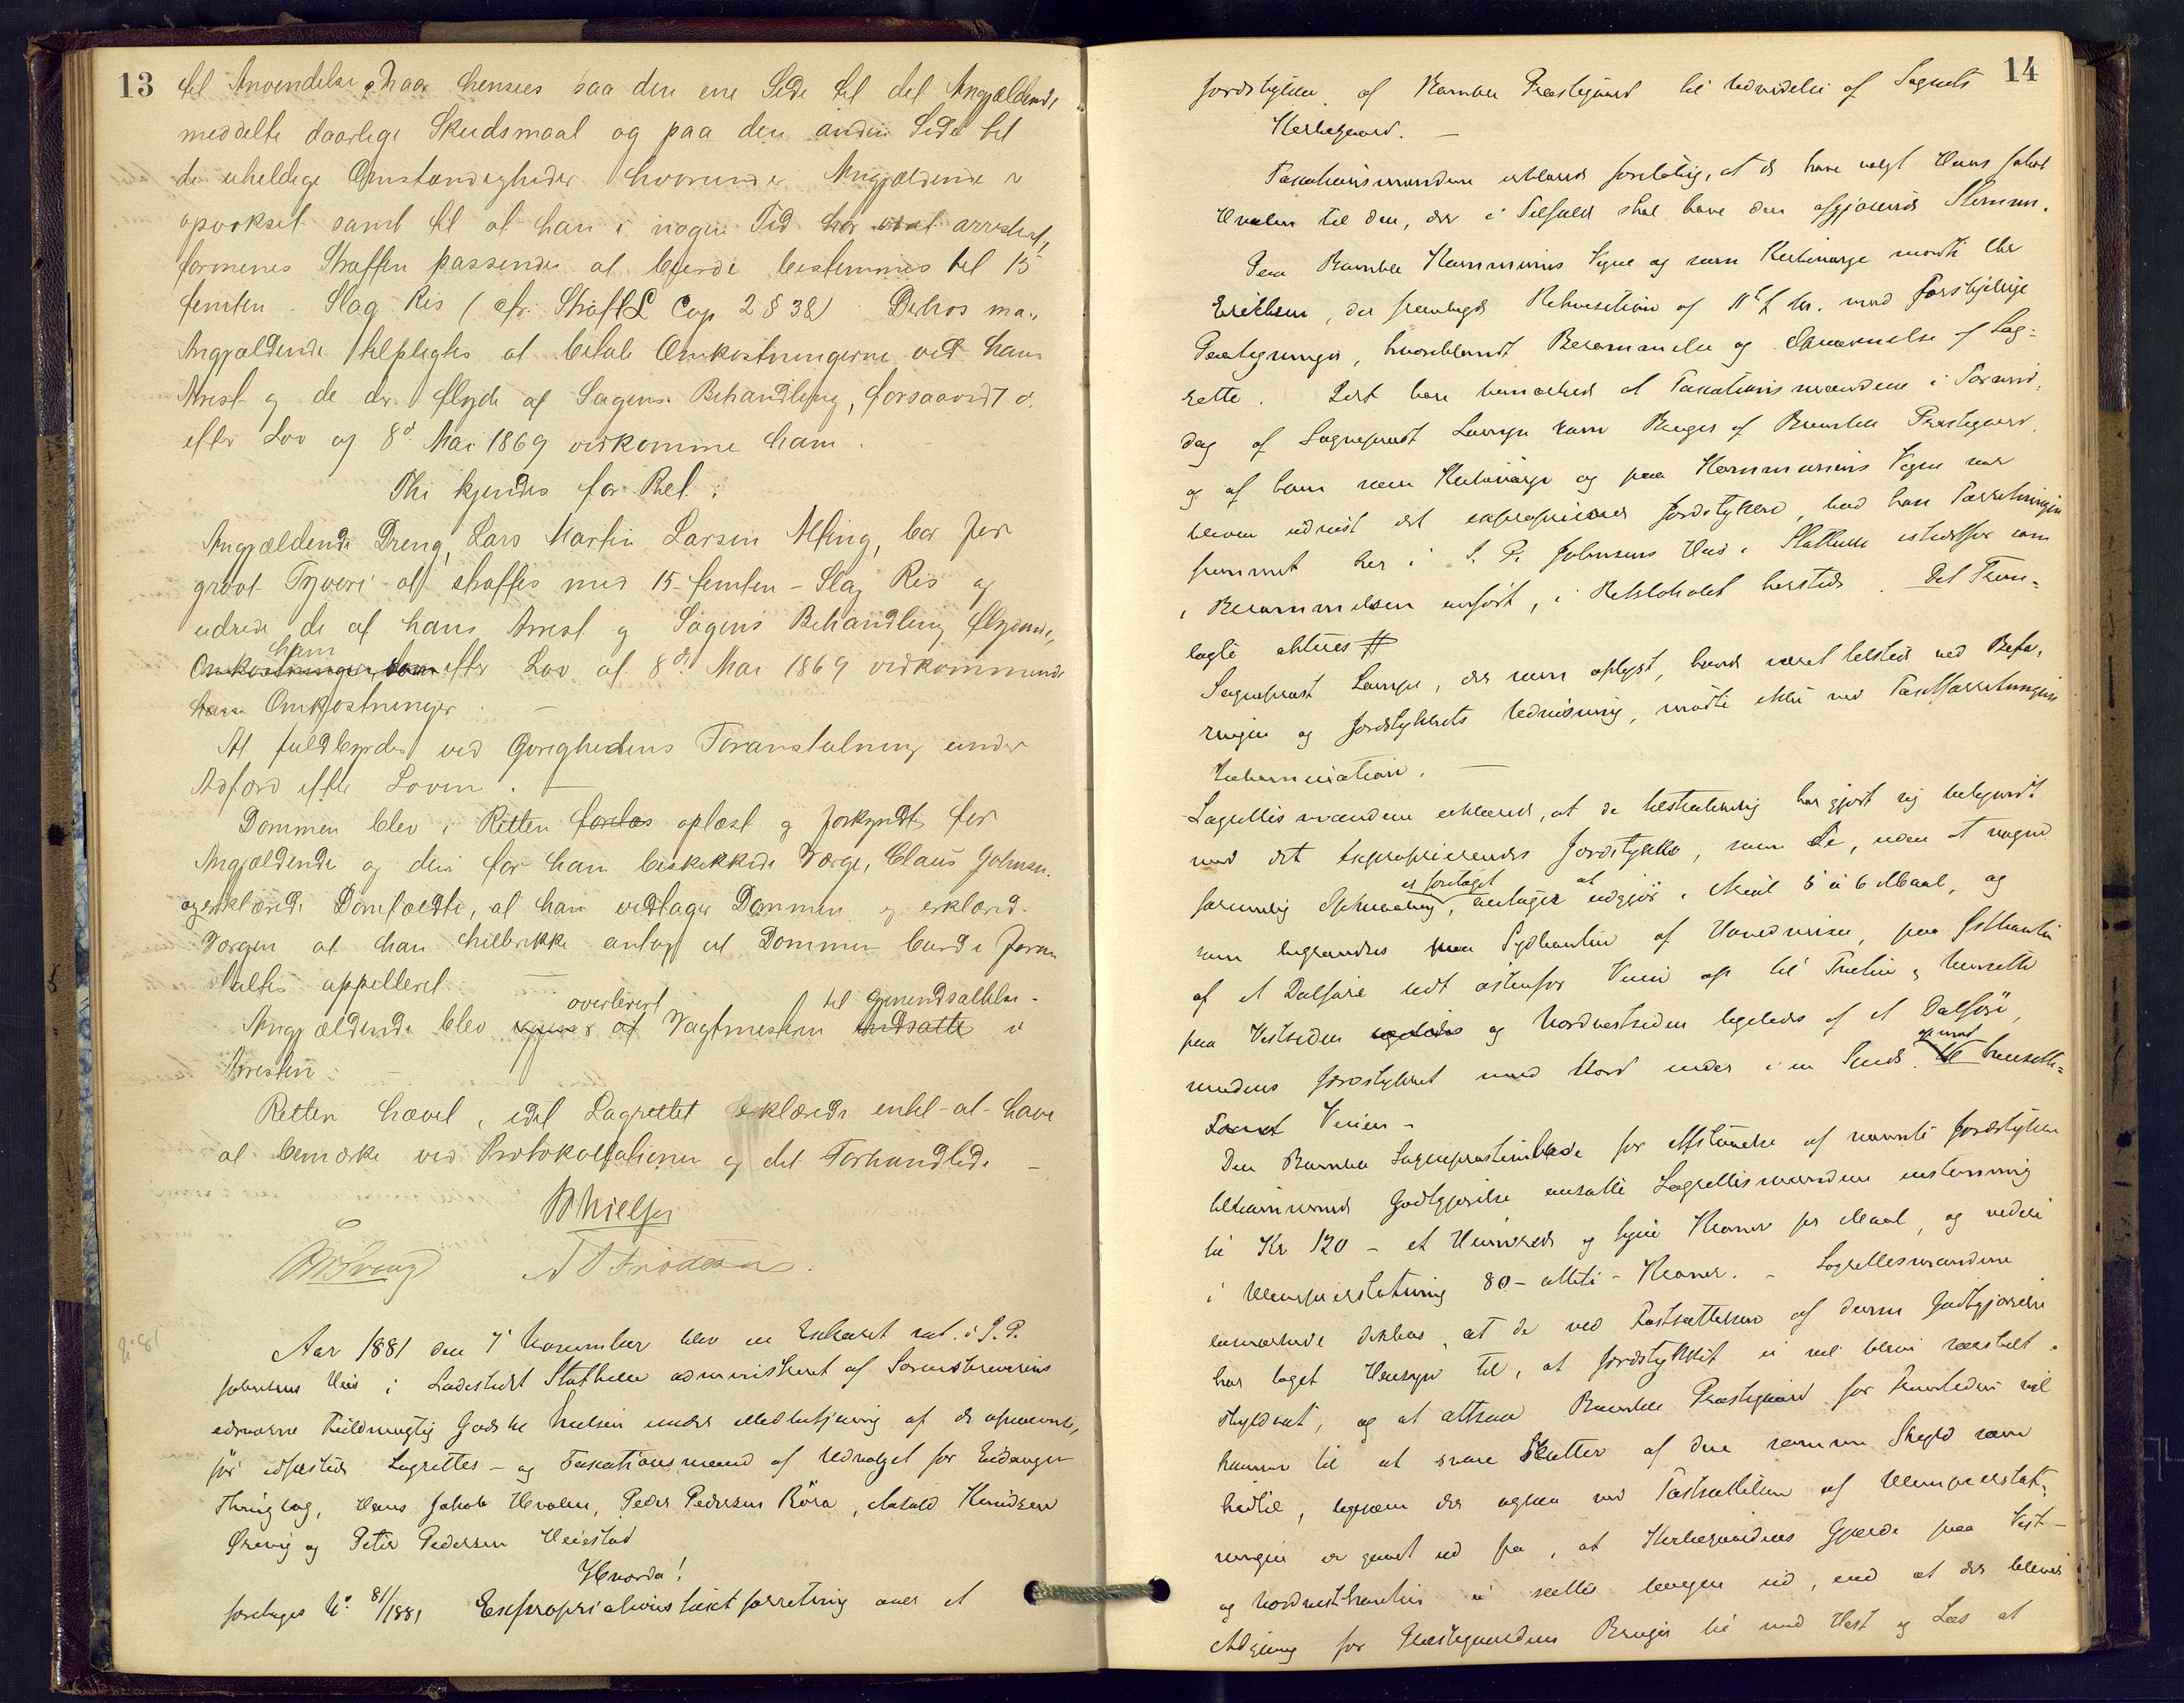 13
til Anvendelse. Naar henses paa den ene Side til det Angjældende
meddelte daarlige Skudsmaal og paa den anden Side til
de uheldige Omstændigheder hvorunder Angjældende er
opvokset samt til at han i nogen Tid har været arresteret,
formenes Straffen passende at burde bestemmes til 15
femten - Slag Ris (cfr. StraffeL Cap 2 § 38) Derhos maa
Angjældende tilpligtes at betale Omkostningerne ved hans
Arrest og de der flyde af Sagens Behandling, forsaavidt de
efter Lov og 8de Mai 1869 vedkomme ham.
Thi kjendes for Ret:
Angjældende Dreng, Lars Martin Larsen Alting, bør for
grovt Tyveri at straffes med 15 - femten - Slag Ris og
udrede de af hans Arrest og Sagens Behandling flydende,
ham
Omkostninger, som efter Lov af 8de Mai 1869 vedkommende
ham Omkostninger. -
At fuldbyrdes ved Øvrighedens Foranstaltning under
Adfærd efter Loven.
Dommen blev i Retten forelæs oplæst og forkyndt for
Angjældende og den for ham beskikkede Værge, Claus Johnsen.
og erklærede Domfældte, at han vedtager Dommen og erklærede
Værgen at han heller ikke antog at Dommen burde foran
staltes appelleret. -
overleveret til Gjenindsættelse
Angjældende blev af Vagtmesteren indsatte i
Arresten. -
Retten hævet, idet Lagrettet erklærede intet - at - have
at bemærke ved Protokollationen og det Forhandlede. -
Nielsen
Aar 1881 den 7 November blev en Extraret sat i S. P.
Johnsens Hus i Ladestedet Stathelle administreret af Sorenskriverens
edsvorne Fuldmægtig Godske Nielsen under Medbetjening af de opnævnte,
før edfæstede Lagrettes- og Taxationsmænd af Udvalget for Eidanger
Thinglag, Hans Jakob Hvalen, Peder Pedersen Röra, Knudsen
Ørvig og Peter Pedersen Heistad
Hvorda!
foretoges No. 81/1881 Expropriationstaxtforretning over et
14
Jordstykke af Bamble Præstegaard til Udvidelse af Sognets
Kirkegaard. -
Taxationsmændene erklærede foreløbig, at de have valgt Hans Jakob
Hvalen til den, der i Tilfælde skal have den afgjørende Stemme.
Paa Bamble Kommunes Vegne og som Kirkeværge mødte
Eriksen, der fremlagde Rekvisition af 11te f. M. med forskjellige
Paategninger, hvoriblandt Berammelse og Opnævnelse af Lag-
rette. Lod han bemærke at Taxationsmændene i Formid-
dag af Sognepræst Lampe som Bruger af Bamble Præstegaard,
og af ham som Kirkeværge og paa Kommunens Vegne var
bleven udvist det exproprierende Jordstykke, bad han Forretningen
fremmet her i S. P. Johnsens Hus i Stathelle istedetfor som
i Berammelsen anført, i Retslokalet hersteds. Det Frem-
lagte akteres #
Sognepræst Lampe, der som oplyst, havde været tilstede ved Befa-
ringen og Jordstykkets Udvisning, mødte ikke ved Taxtforretningens
Administration. -
Lagrettesmændene erklærede, at de tilstrækkelig har gjort sig bekjendt
med det exproprierende Jordstykke, som de, uden at nogen
er foretaget at
formelig Opmaaling, antager udgjør i Areal 5 à 6 Maal, og
som begrændses paa Sydkanten af Hovedveien, paa Østkanten
af et Dalføre lidt østenfor Veien op til Tveten og hensatte
paa Vestsiden og Nordvestsiden ligeledes af et Dalføre,
op mod
medens Jordstykket mod Nord ender i en Spids. hensatte-
Veien -
Den Bamble Sognepræstembede for Afstaaelse af nævnte Jordstykke
tilkommende Godtgjørelse ansatte Lagrettesmændene enstemmig
til Kr 120 - et Hundrede og tyve Kroner per Maal, og videre
i Ulempeerstatning 80 - otteti - Kroner. - Lagrettesmændene
bemærkede derhos, at de ved Fastsættelsen af denne Godtgjørelse
har taget Hensyn til, at Jordstykket ei vil blive særskilt
skyldsat, og at altsaa Bamble Præstegaard for Fremtiden vil
komme til at svare Skatter af den samme Skyld som
hidtil, ligesom der ogsaa ved Fastsættelsen af Ulempeerstat-
ningen er gaaet ud fra, at Kirkegaardens Gjærde paa Vest-
og Nordvestkanten ei sættes længere ud, end at der bliver
Adgang for Præstegaardens Bruger til med Hest og Læs at